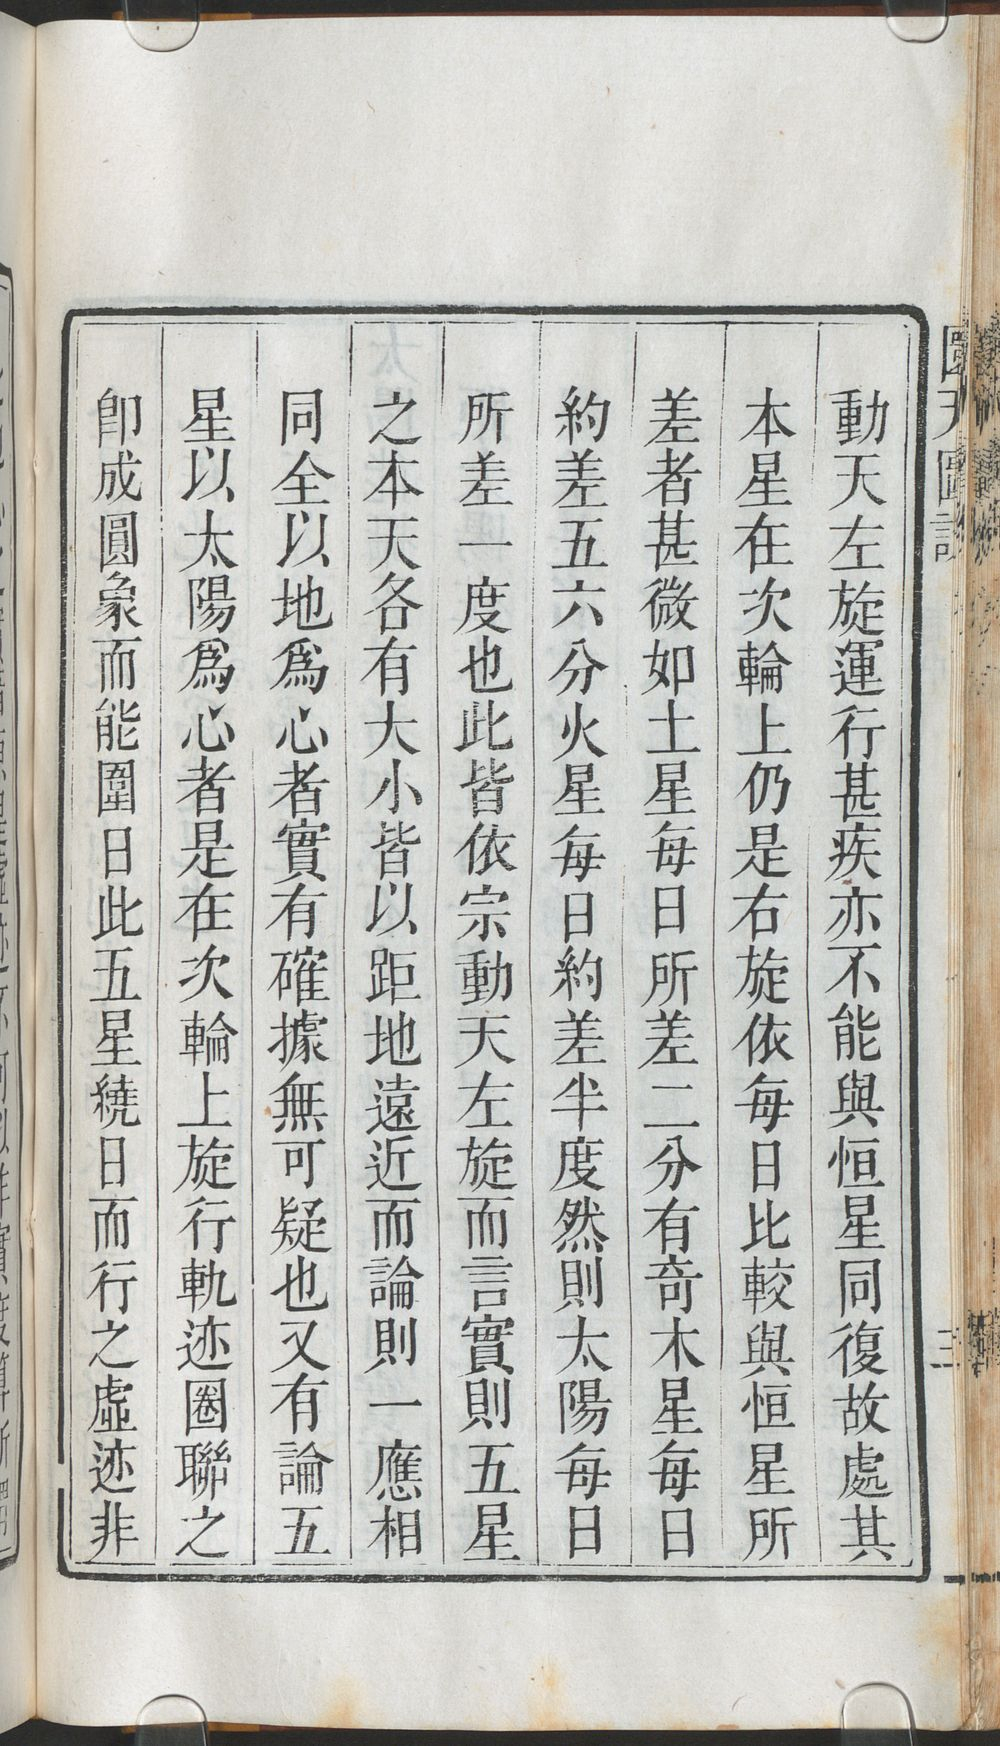 動天左旋運行甚疾亦不能與恒星同復故處其
本星在次輪上仍是右旋依每日比較與恒星所
差者甚微如土星每日所差二分有奇木星每日
約差五六分火星每日約差半度然則太陽每日
所差一度也此皆依宗動天左旋而言實則五星
之本天各有大小皆以距地遠近而論則一應相
同全以地爲心者實有確據無可疑也又有論五
星以太陽爲心者是在次輪上旋行軌迹圈聯之
卽成圓象而能圍日此五星繞日而行之虛迹非